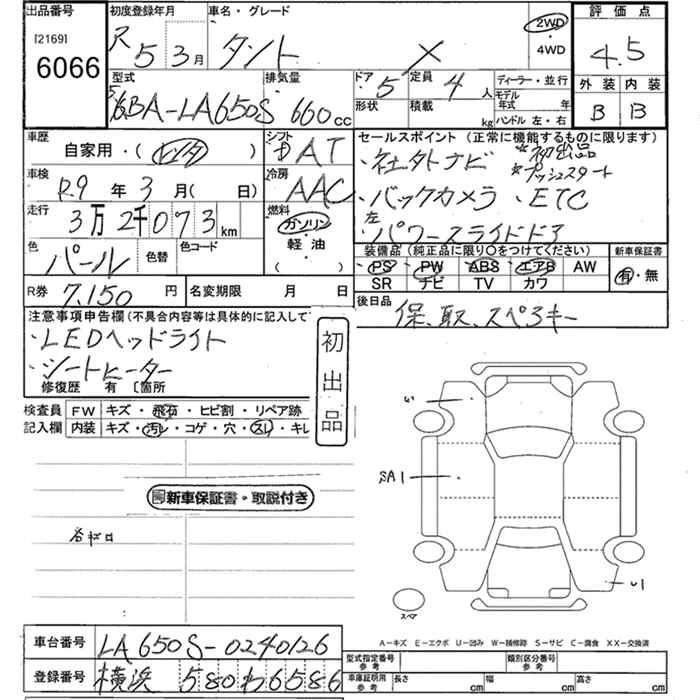 出品番号 初度登録年月 車名・グレード 評価点
[2169]
6066
R 5 3月 タント X 2WD・4WD 4.5
型式 排気量 ドア 定員 ディーラー・並行 外装 内装
6BA-LA650S 660cc 5 4人 モデル年式 年 B B
形状 積載 kg ハンドル 左・右
車歴 シフト セールスポイント(正常に機能するものに限ります)
自家用・(レンタ) AT ・社外ナビ ☆初出品
☆プッシュスタート
車検 R9年3月(日) 冷房 AAC ・バックカメラ ・ETC
走行 3万2千073km 燃料 ガソリン 左
・パワースライドドア
軽油
( )
色 パール 色替 色コード 装備品(純正品に限り○をつけてください) 新車保証書
PS PW ABS エアB AW 有・無
SR ナビ TV カワ
R券 7,150円 名変期限 月 日 後日品
保、取、スペアキー
注意事項申告欄(不具合内容等は具体的に記入して
・LEDヘッドライト
・シートヒーター
修復歴 有 [箇所
初出品
検査員 FW キズ・飛石・ヒビ割・リペア跡
記入欄 内装 キズ・汚レ・コゲ・穴・スレ・キレ
SA1
新車保証書・取説付き
スペア
A-キズ E-エクボ U-凹み W-補修跡 S-サビ C-腐食 XX-交換済
車台番号 LA650S-0240126
型式指定番号 参考 類別区分番号 参考
登録番号 横浜 580わ6586
車庫証明用 参考 長さ cm 幅 cm 高さ cm